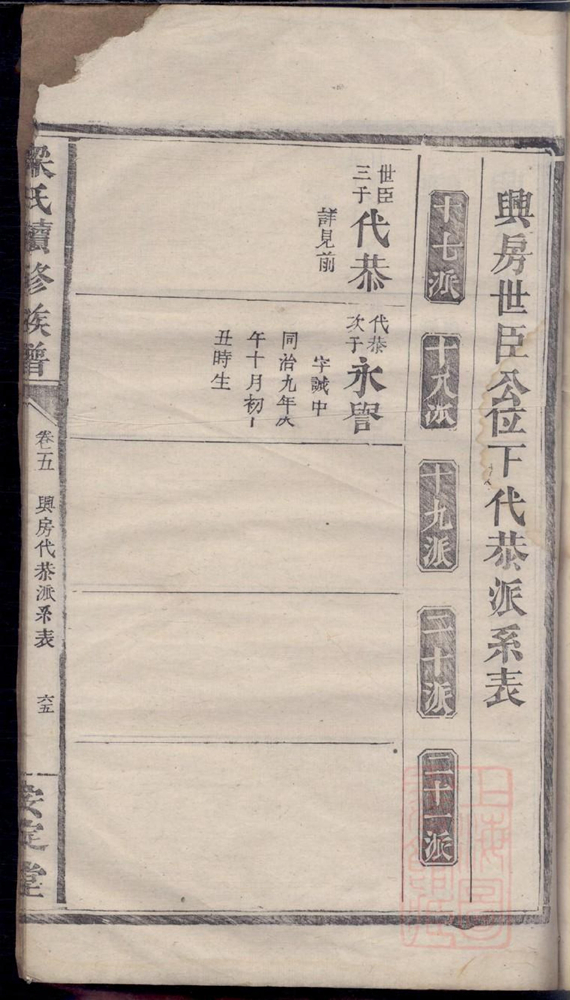 興房世臣公位下代恭派系表
十七派
十八派
十九派
二十派
二十一派
世臣
三子
代恭
詳見前
代恭
次子
永譽
字誠中
同治九年庚
午十月初一
丑時生
梁氏續修族譜
卷五
興房代恭派系表
六五
安定堂
上海圖